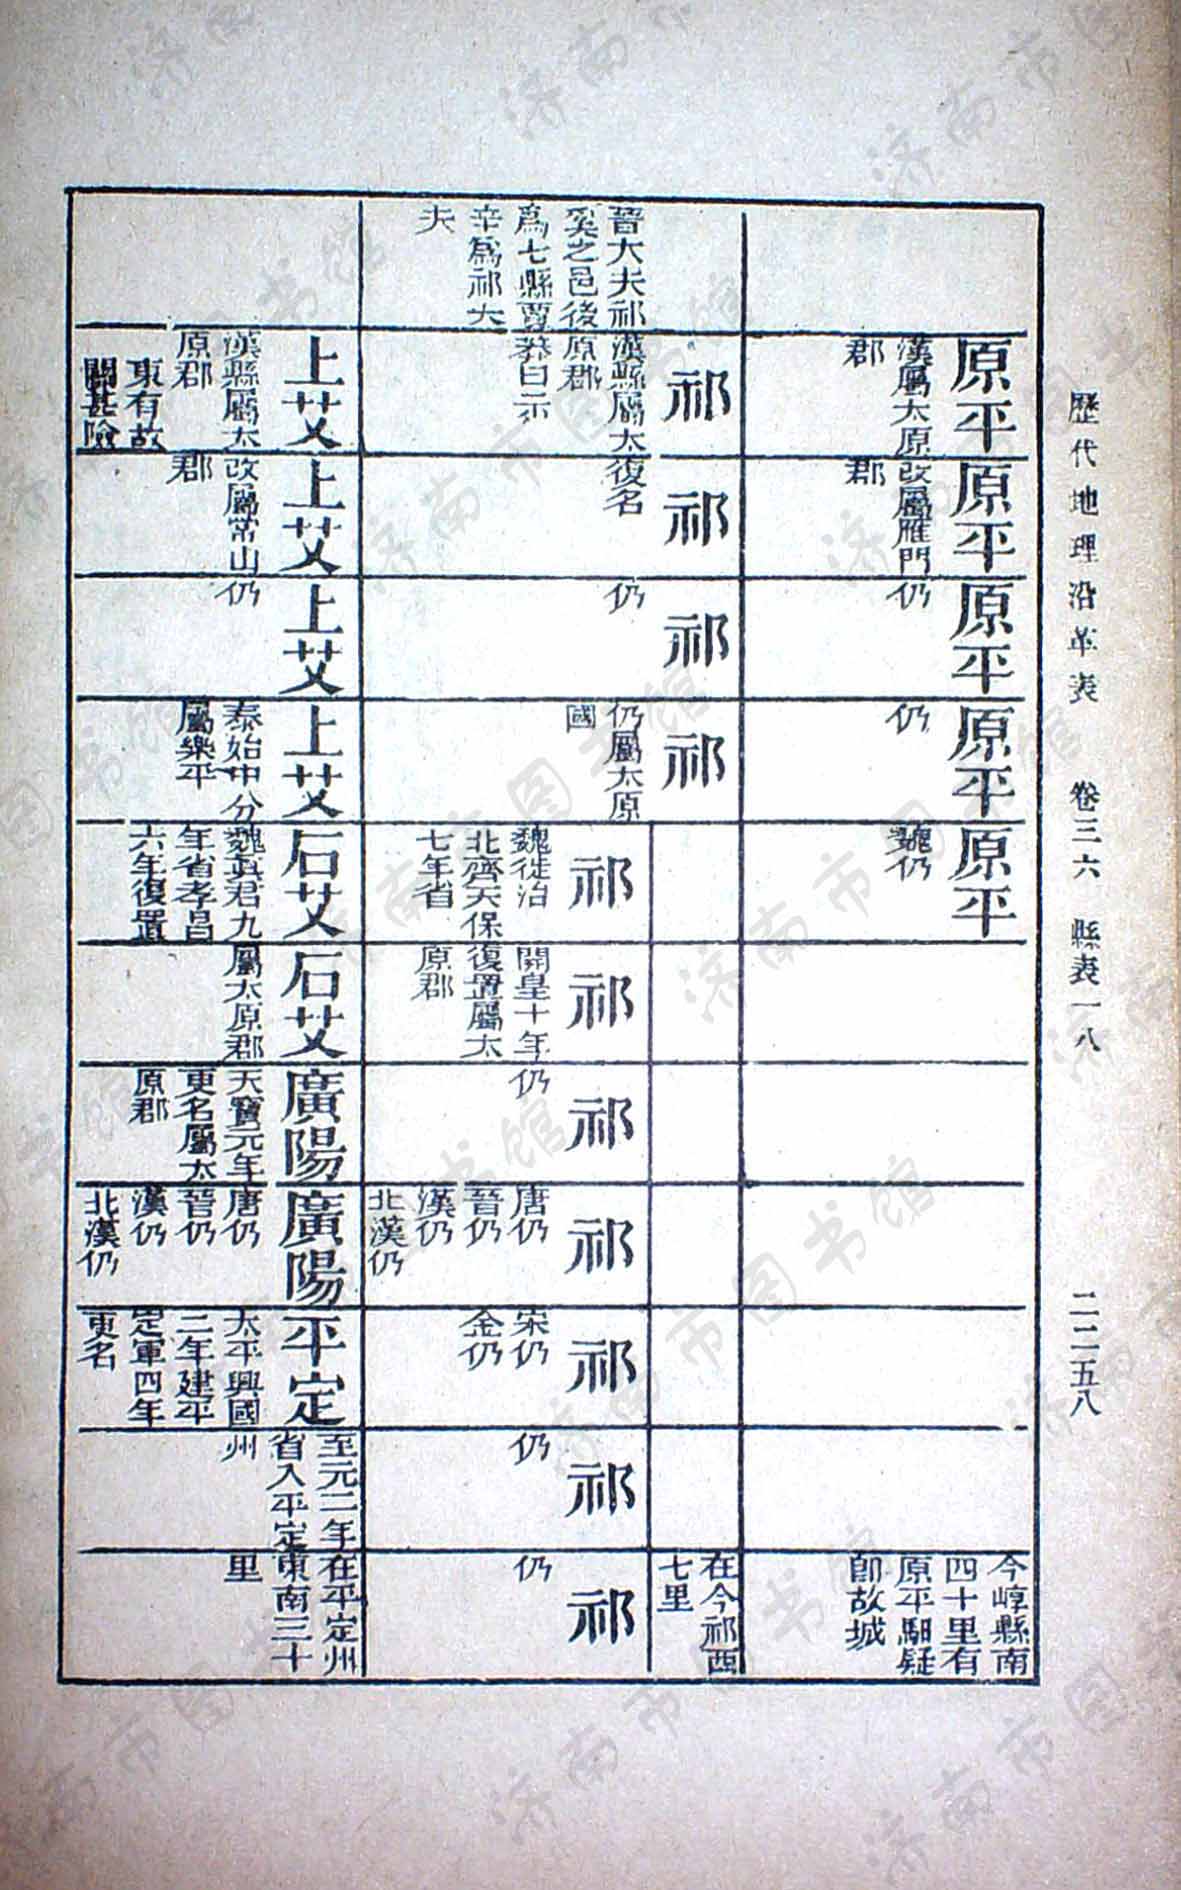 歷代地理沿革表　卷三六　縣表一八　二二五八
原平
漢屬太原
郡
原平
改屬雁門
郡
原平
仍
原平
仍
原平
魏仍
今崞縣南
四十里有
原平驲疑
卽故城
晉大夫祁
奚之邑後
爲七縣賈
辛爲祁大
夫
祁
漢縣屬太
原郡
莽曰示
祁
復名
祁
仍
祁
仍屬太原
國
在今祁西
七里
祁
魏徙治
北齊天保
七年省
祁
開皇十年
復置屬太
原郡
祁
仍
祁
唐仍
晉仍
漢仍
北漢仍
祁
宋仍
金仍
祁
仍
祁
仍
上艾
漢縣屬太
原郡
東有故
關甚險
上艾
改屬常山
郡
上艾
仍
上艾
泰始中分
屬樂平
石艾
魏眞君九
年省孝昌
六年復置
石艾
屬太原郡
廣陽
天寶元年
更名屬太
原郡
廣陽
唐仍
晉仍
漢仍
北漢仍
平定
太平興國
二年建平
定軍四年
更名
至元二年
省入平定
州
在平定州
東南三十
里
济南市图书馆